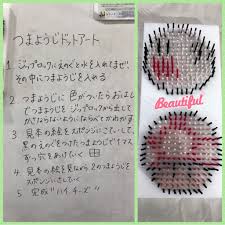 つまようじドットアート
1 ジップロックにえのぐと水を入れてまぜ、
その中につまようじを入れる
2 つまようじに色がついたらおはし
でつまようじをジップロックから出して
かさならないようにならべてかわかす
3 見本の絵をスポンジにさして、
黒のえのぐをつけたつまようじで1マス
ずつ穴をあけていく
4 見本の絵を見ながら2のつまようじを
スポンジにさしていく
5 完成"ハイ、チーズ"
Beautiful